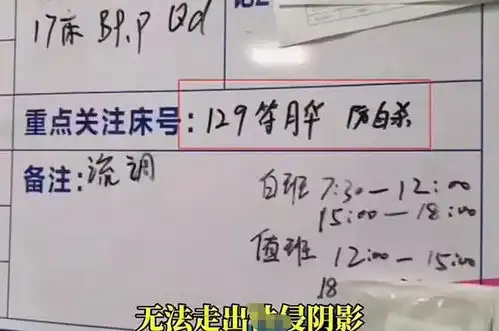 17床 BP.P Qd
重点关注床号:129 月华 防自杀
备注:流调
白班 7:30—12:00
15:00—18:00
值班 12:00—15:00
18
无法走出 侵阴影